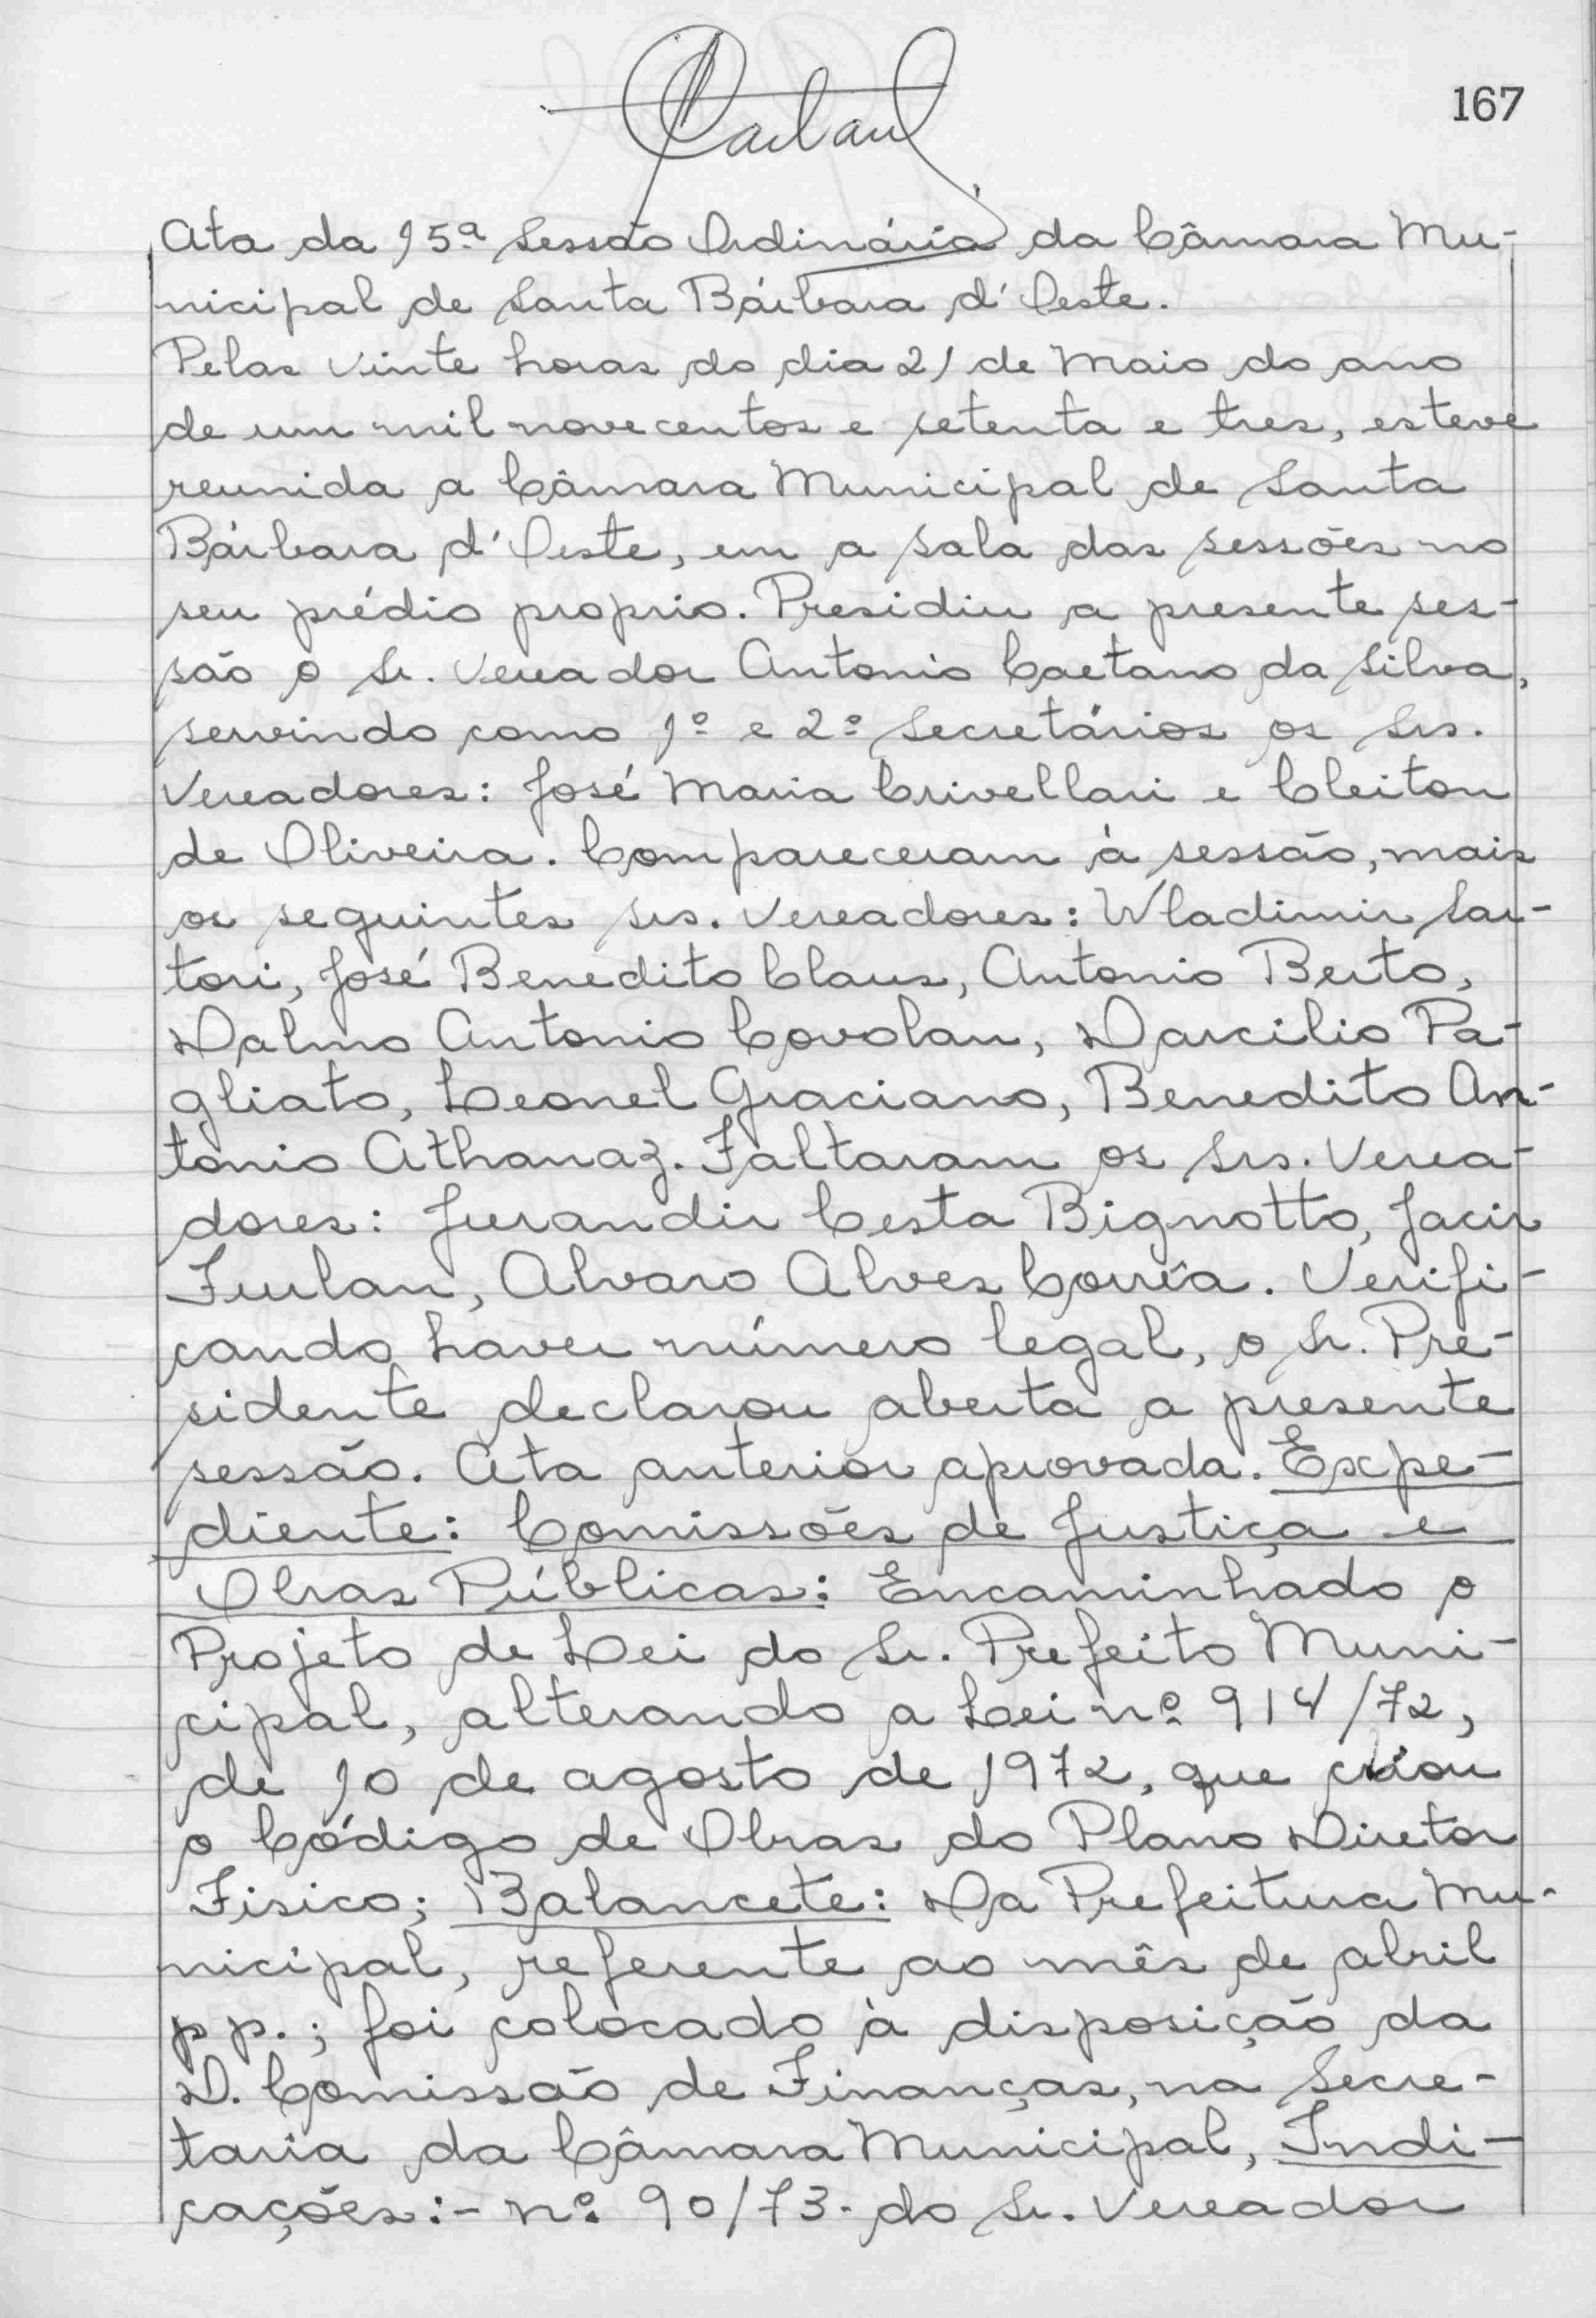 167
Ata da 15ª Sessão Ordinária da Câmara Mu-
nicipal de Santa Bárbara d'Oeste.
Pelas vinte horas do dia 21 de Maio do ano
de um mil novecentos e setenta e tres, esteve
reunida a Câmara Municipal de Santa
Bárbara d'Oeste, em a sala das sessões no
seu prédio proprio. Presidiu a presente ses-
são o Sr. Vereador Antonio Caetano da Silva,
servindo como 1º e 2º Secretários os Srs.
Vereadores: José Maria Crivellari e Cleiton
de Oliveira. Compareceram à sessão, mais
os seguintes srs. Vereadores: Wladimir Sar-
tori, José Benedito Claus, Antonio Berto,
Dalmo Antonio Covolan, Darcilio Pa-
gliato, Leonel Graciano, Benedito An-
tonio Athanaz. Faltaram os Srs. Verea-
dores: Jurandir Cesta Bignotto, Jacir
Furlan, Alvaro Alves Corrêa. Verifi-
cando haver número legal, o Sr. Pre-
sidente declarou aberta a presente
sessão. Ata anterior aprovada. Expe-
diente: Comissões de Justiça e
Obras Públicas: Encaminhado o
Projeto de Lei do Sr. Prefeito Muni-
cipal, alterando a Lei nº 914/72,
de 10 de agosto de 1972, que criou
o Código de Obras do Plano Diretor
Fisico; Balancete: Da Prefeitura Mu-
nicipal, referente ao mês de abril
pp.; foi colocado à disposição da
D. Comissão de Finanças, na Secre-
taria da Câmara Municipal, Indi-
cações:- nº 90/73- do Sr. Vereador